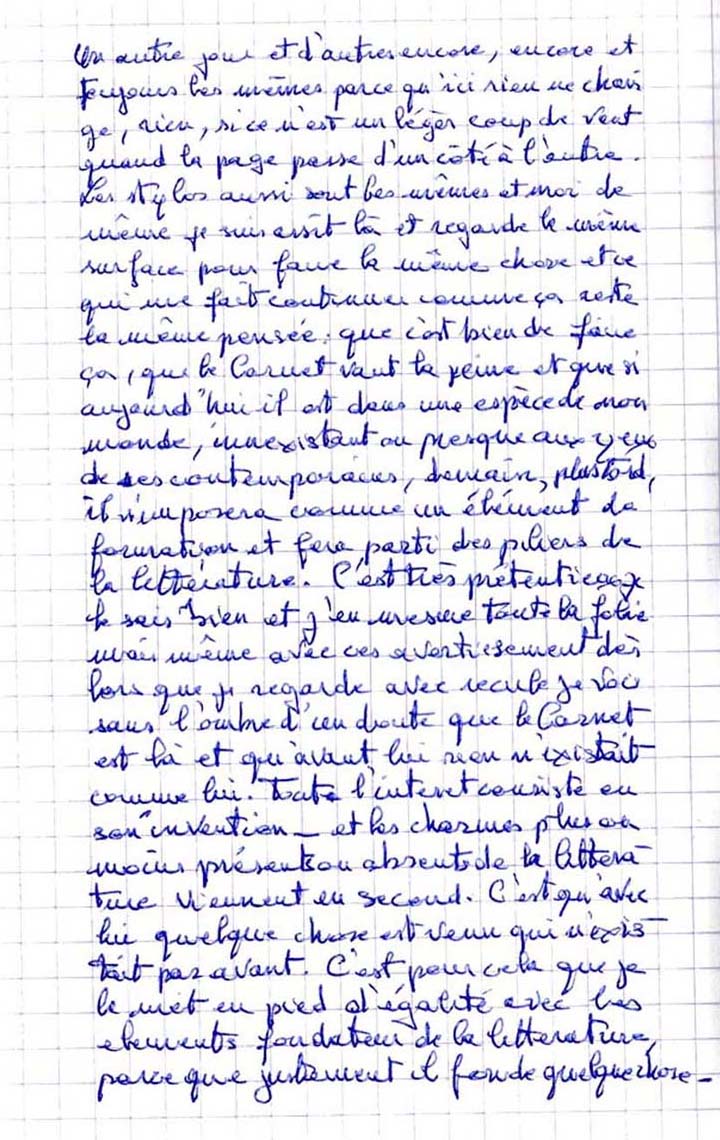 Un autre jour et d'autres encore, encore et
toujours les mêmes parce qu'ici rien ne chan
ge, rien, si ce n'est un léger coup de vent
quand la page passe d'un côté à l'autre.
Les stylos aussi sont les mêmes et moi de
même je suis assit là et regarde la même
surface pour faire la même chose et ce
qui me fait continuer comme ça reste
la même pensée : que c'est bien de faire
ça, que le Carnet vaut la peine et que si
aujourd'hui il est dans une espèce de non
monde, innexistant ou presque aux yeux
de ses contemporains, demain, plus tard,
il s'imposera comme un élément de
formation et fera parti des piliers de
la littérature. C'est très prétentieux je
le sais bien et j'en mesure toute la folie
mais même avec ces avertissement dès
lors que je regarde avec recule je vois
sans l'ombre d'un doute que le Carnet
est là et qu'avant lui rien n'existait
comme lui. Toute l'interet consiste en
son invention _ et les charmes plus ou
moins présents ou absents de la littera-
ture viennent en second. C'est qu'avec
lui quelque chose est venu qui n'exis-
tait pas avant. C'est pour cela que je
le met en pied d'égalité avec les
elements fondateur de la litterature,
parce que justement il fonde quelque chose _